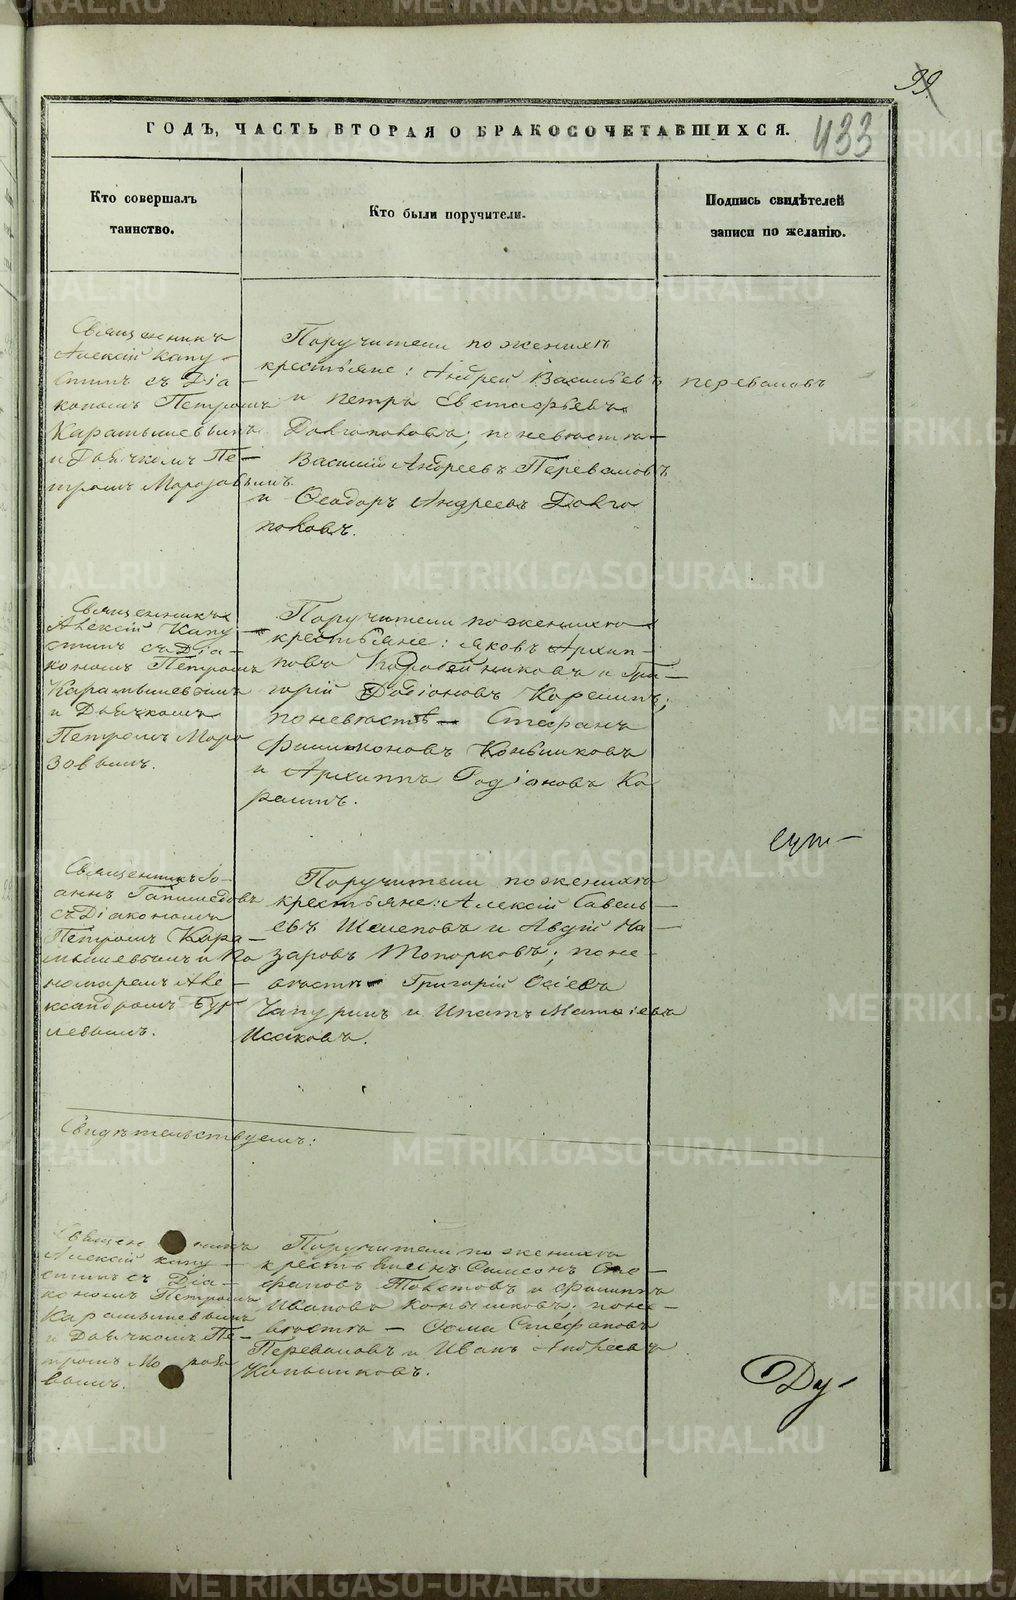 99
433
ГОДЪ, ЧАСТЬ ВТОРАЯ О БРАКОСОЧЕТАВШИХСЯ.
Кто совершалъ
таинство.
Кто были поручители.
Подпись свидѣтелей
записи по желанію.
Священникъ
Алексій Капу-
стинъ съ Діа-
кономъ Петромъ
Карамышевымъ
и Дьячкомъ Пе-
тромъ Морозовымъ.
Поручители по женихѣ
крестьяне: Андрей Васильевъ Переваловъ
и Петръ Евстафьевъ
Долгополовъ; по невѣстѣ
Василій Андреевъ Переваловъ
и Ѳеодоръ Андреевъ Долго
половъ.
Священникъ
Алексій Капу-
стинъ съ Діа-
кономъ Петромъ
Карамышевымъ
и Дьячкомъ
Петромъ Моро
зовымъ.
Поручители по женихѣ
крестьяне: Яковъ Архип-
повъ Коробейниковъ и Гри-
горій Родіоновъ Карелинъ;
по невѣстѣ Стефанъ
Филимоновъ Коньшиковъ
и Архиппъ Родіоновъ Ка
релинъ.
Священникъ Іо-
аннъ
съ Діакономъ
Петромъ Кара-
мышевымъ и По
номаремъ Але-
ксандромъ
Поручители по женихѣ
крестьяне: Алексій Савель-
евъ Шелеповъ и Авдій На-
заровъ Топорковъ; по не-
вѣстѣ Григорій Осіевъ
Чапуринъ и Ипатъ Матѳіевъ
Исаковъ.
Свидѣтельствуемъ:
Священникъ
Алексій Капу-
стинъ съ Діа-
кономъ Петромъ
Карамышевымъ
и Дьячкомъ Пе-
тромъ Морозо
вымъ.
Поручители по женихѣ
крестьяне Самсонъ Сте-
фановъ и Филиппъ
Ивановъ Коньшиковъ; по не-
вѣстѣ — Ѳома Стефановъ
Переваловъ и Иванъ Андреевъ
Коньшиковъ.
Ду-
METRIKI.GASO-URAL.RU